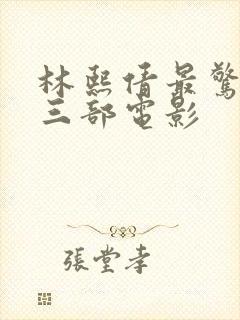 林熙倩最驚
三部電影
張堂幸